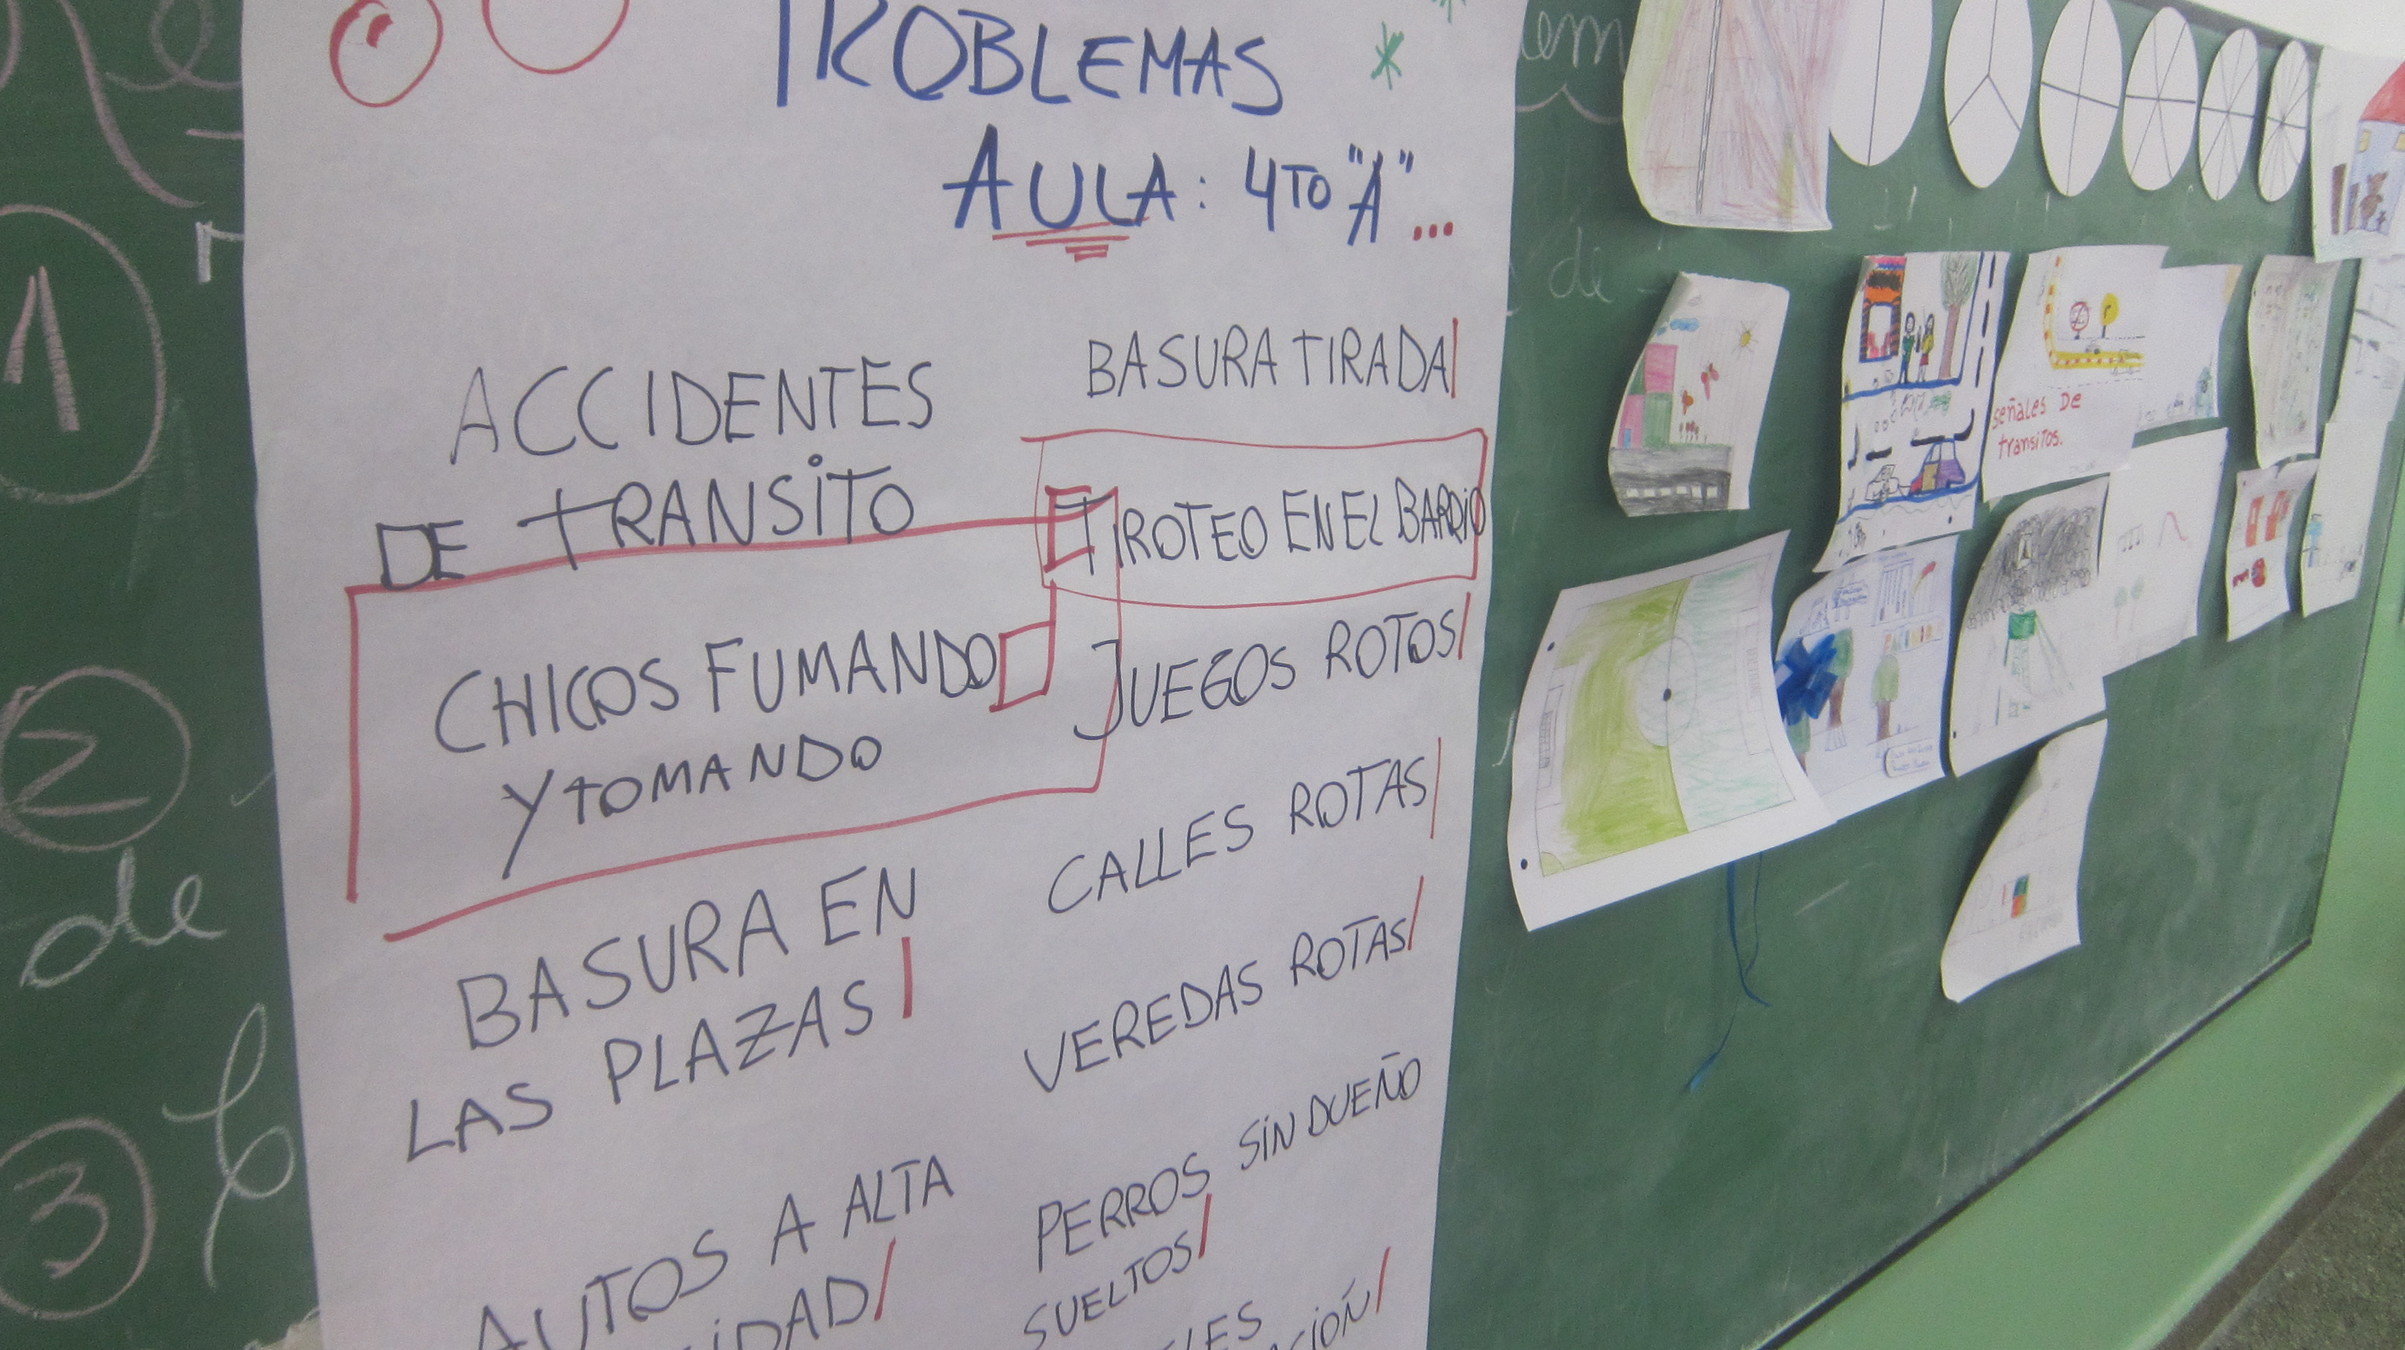 PROBLEMAS
AULA: 4TO "A"...
ACCIDENTES
DE TRANSiTO
CHICOS FUMANDO
Y TOMANDO
BASURA EN
LAS PLAZAS
AUTOS A ALTA
BASURA TIRADA
TIROTEO EN EL BARRiO
JUEGOS ROTOS
CALLES ROTAS
VEREDAS ROTAS
PERROS SiN DUEÑO
SUELTOS
1
2
de
3
de
señales De
transitos.